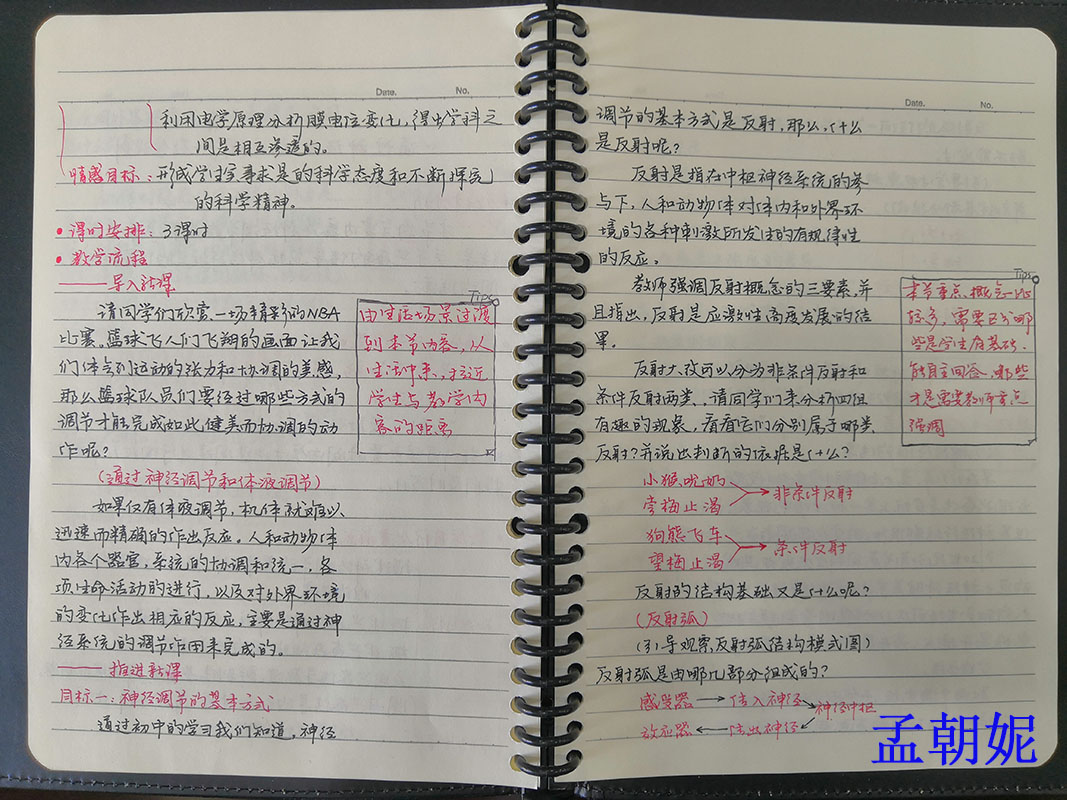 Date.
No.
利用电学原理分析膜电位变化，得出学科之
间是相互渗透的。
情感目标：形成学生实事求是的科学态度和不断探究
的科学精神。
•课时安排：3课时
•教学流程
——导入新课
请同学们欣赏一场精彩的NBA
比赛，篮球飞人们飞翔的画面让我
们体会到运动的张力和协调的美感，
那么篮球队员们要经过哪些方式的
调节才能完成如此健美而协调的动
作呢？
Tips
由生活场景过渡
到本节内容，从
生活中来，拉近
学生与教学内
容的距离
（通过神经调节和体液调节）
如果仅有体液调节，机体就难以
迅速而精确的作出反应。人和动物体
内各个器官，系统的协调和统一，各
项生命活动的进行，以及对外界环境
的变化作出相应的反应，主要是通过神
经系统的调节作用来完成的。
——推进新课
目标一：神经调节的基本方式
通过初中的学习我们知道，神经
Date.
No.
调节的基本方式是反射，那么，什么
是反射呢？
反射是指在中枢神经系统的参
与下，人和动物体对体内和外界环
境的各种刺激所发生的有规律性
的反应。
教师强调反射概念的三要素，并
且指出，反射是应激性高度发展的结
果。
反射大致可以分为非条件反射和
条件反射两类、请同学们来分析四组
有趣的现象，看看它们分别属于哪类
反射？并说出判断的依据是什么？
Tips
本节重点、概念
较多，需要区分哪
些是学生有基础、
能自主回答、哪些
才是需要教师重点
强调
小猴吮奶
尝梅止渴
→非条件反射
狗熊飞车
望梅止渴
→条件反射
反射的结构基础又是什么呢？
（反射弧）
（引导观察反射弧结构模式图）
反射弧是由哪几部分组成的？
感受器→传入神经→神经中枢
效应器←传出神经
孟朝妮